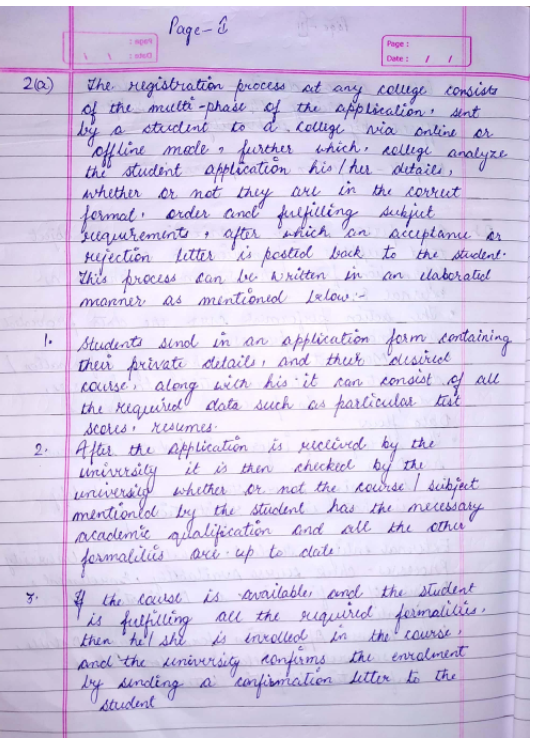 Page - 1
Page :
Date : / /
2(a) The registration process at any college consists
of the multi-phase of the application, sent
by a student to a college via online or
offline mode, further which, college analyze
the student application his/her details,
whether or not they are in the correct
format, order and fulfilling subject
requirements, after which an acceptance or
rejection letter is posted back to the student.
This process can be written in an elaborated
manner as mentioned below :-
1. Students send in an application form containing
their private details, and their desired
course, along with his it can consist of all
the required data such as particular test
scores, resumes.
2. After the application is received by the
university it is then checked by the
university whether or not the course / subject
mentioned by the student has the necessary
academic qualification and all the other
formalities are up to date.
3. If the course is available, and the student
is fulfilling all the required formalities,
then he/she is enrolled in the course,
and the university confirms the enrolment
by sending a confirmation letter to the
student